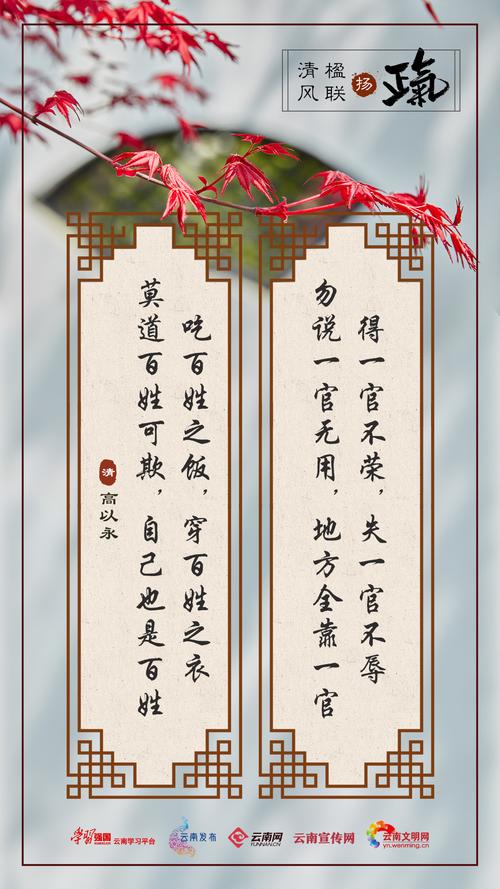 清风
楹联
扬
正氣
得一官不荣，失一官不辱
勿说一官无用，地方全靠一官
吃百姓之饭，穿百姓之衣
莫道百姓可欺，自己也是百姓
清
高以永
学习强国 云南学习平台
云南发布
云南网
YUNNAN.CN
云南宣传网
云南文明网
yn.wenming.cn